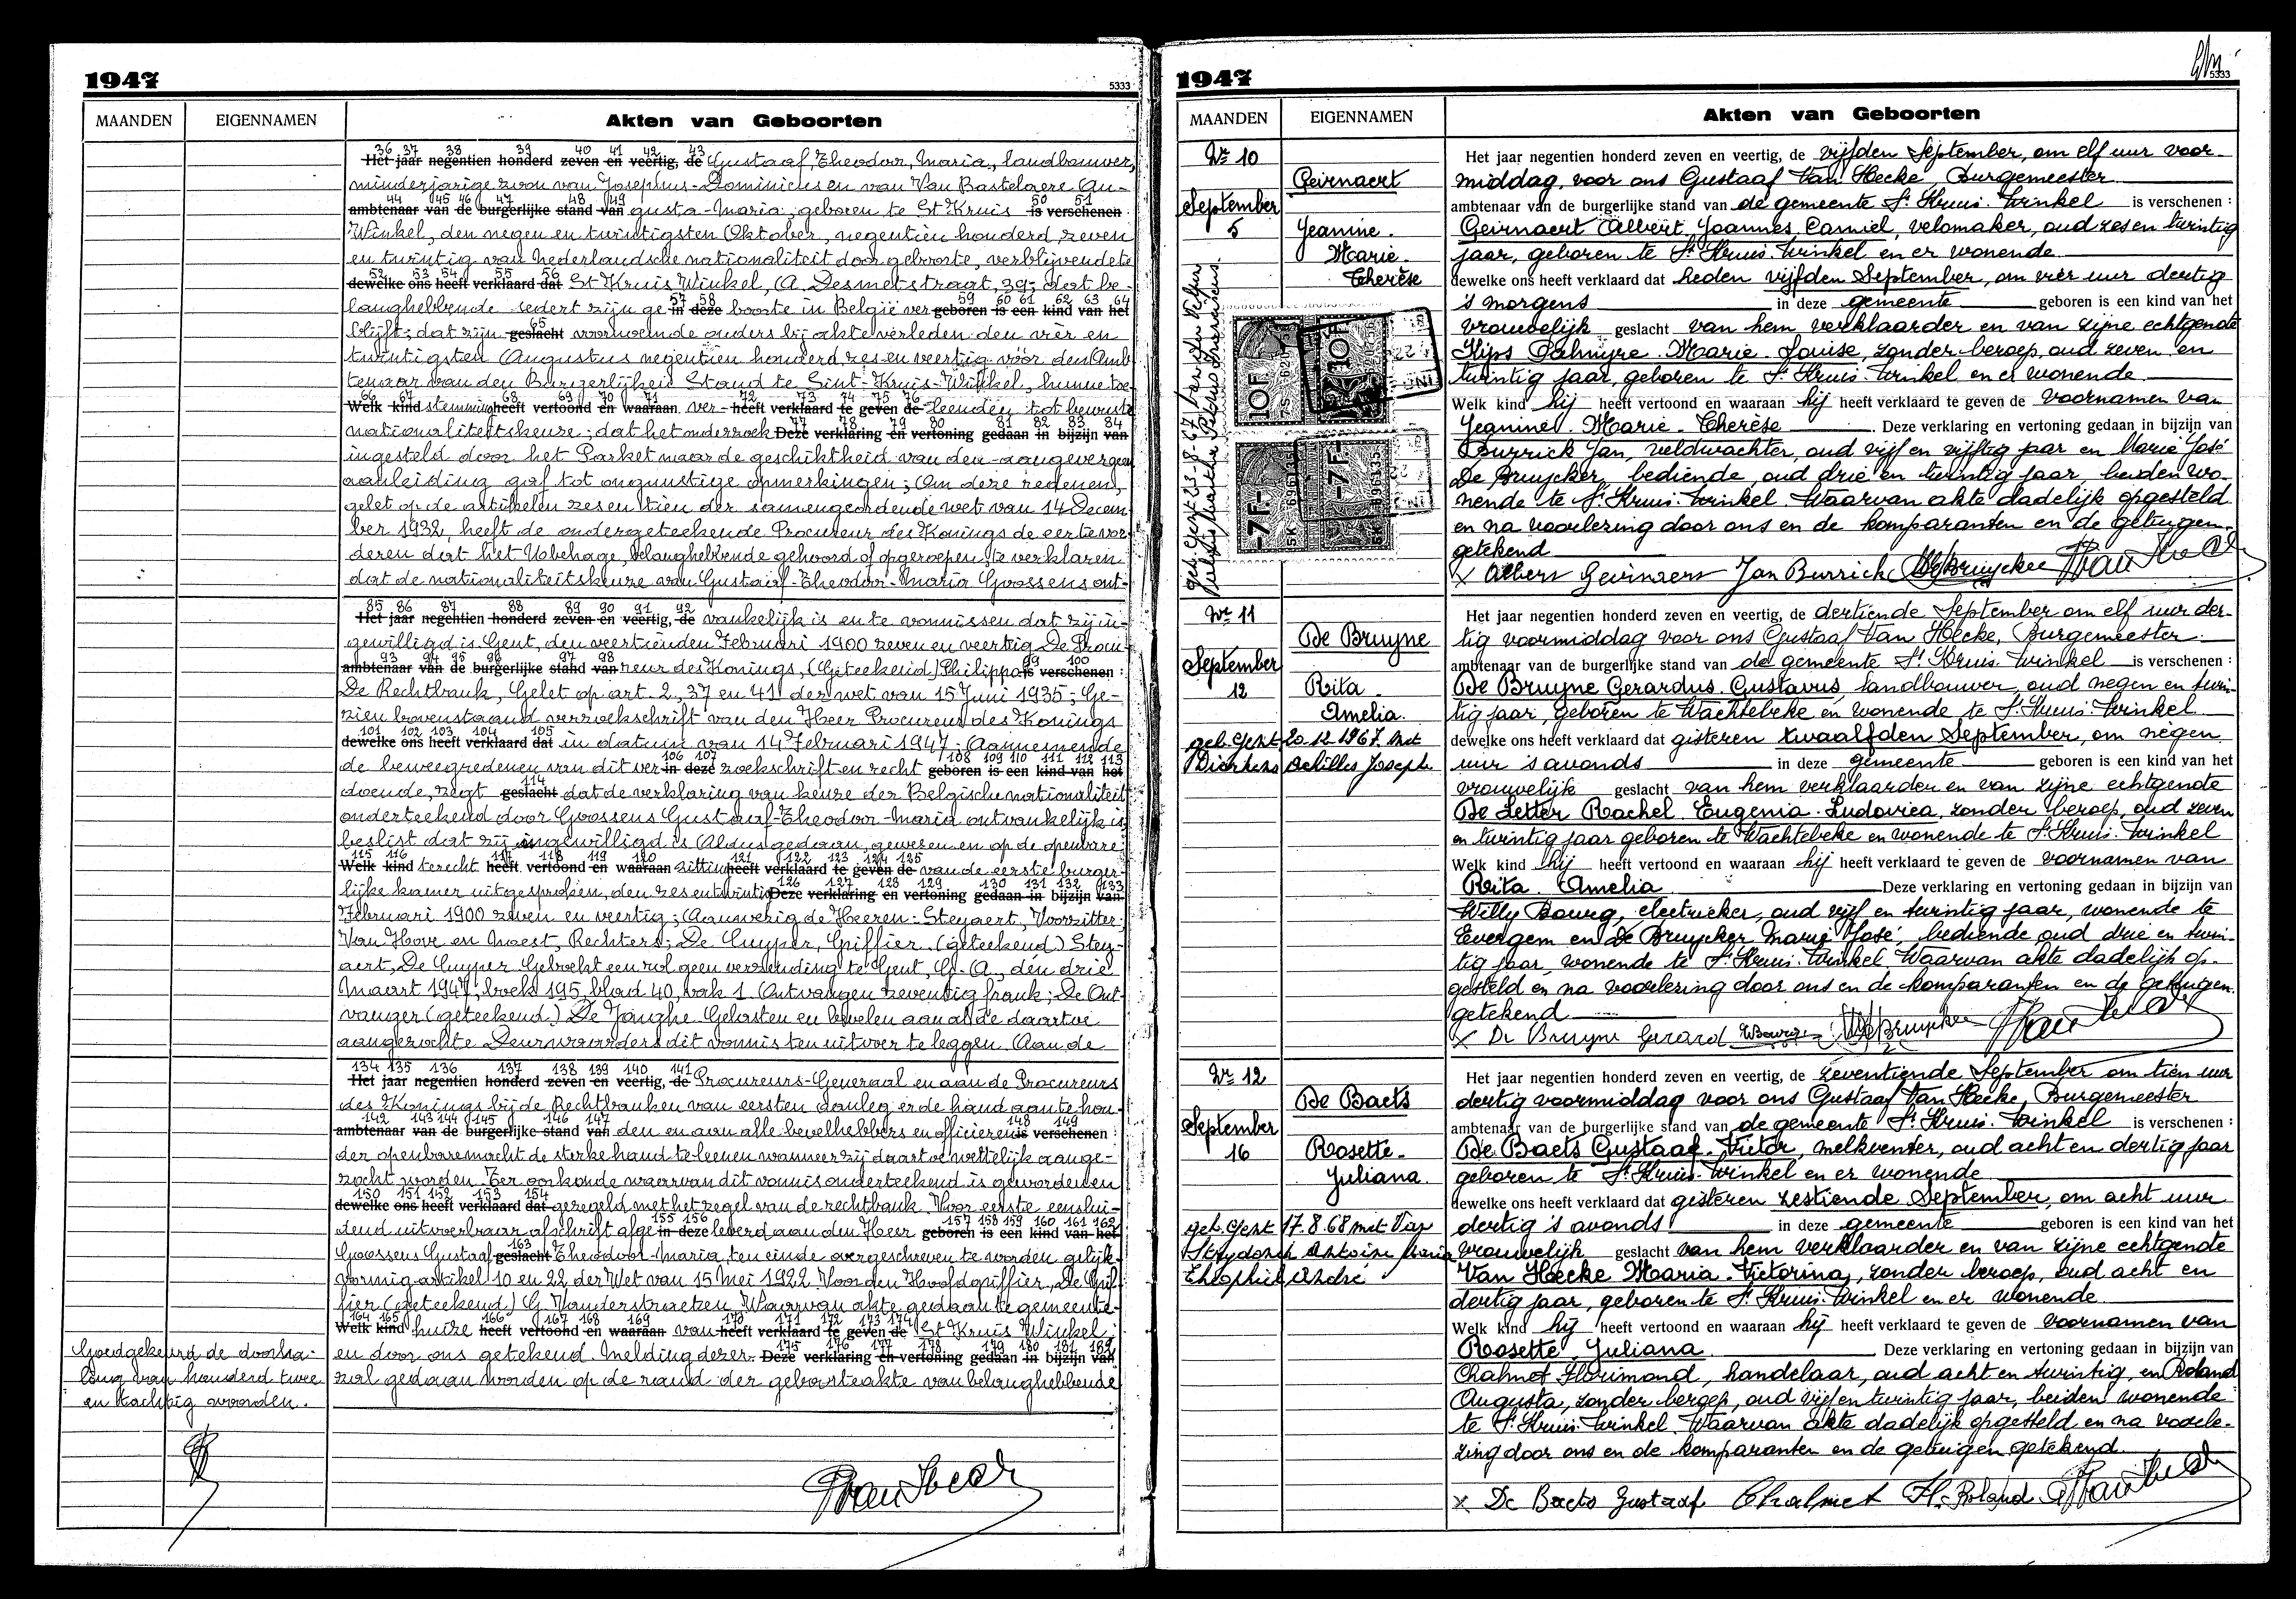 1947
5333
MAANDEN EIGENNAMEN Akten van Geboorten
Het jaar negentien honderd zeven en veertig, de Gustaaf, Theodoor, Maria, landbouwer,
minderjarige zoon van Josephus-Dominicus en van Van Bastelaere Au-
ambtenaar van de burgerlijke stand van gusta-Maria; geboren te St Kruis is verschenen :
Winkel, den negen en twintigsten Oktober, negentien honderd zeven
en twintig van Nederlandsche nationaliteit door geboorte, verblijvende te
dewelke ons heeft verklaard dat St Kruis Winkel, (A. Desmetstraat, 39; dat be-
langhebbende sedert zijn ge in deze boorte in België ver geboren is een kind van het
blijft; dat zijn geslacht voornoemde ouders bij akte verleden den vier en
twintigsten Augustus negentien honderd zes en veertig vóór den Amb
tenaar van den Burgerlijken Stand te Sint-Kruis-Winkel, hunne toe-
Welk kind stemming heeft vertoond en waaraan ver- heeft verklaard te geven de leenden tot bewuste
nationaliteitskeuze; dat het onderzoek Deze verklaring en vertoning gedaan in bijzijn van
ingesteld door het Parket naar de geschiktheid van den aangever geen
aanleiding gaf tot ongunstige opmerkingen; Om deze redenen,
gelet op de artikelen zes en tien der samengeordende wet van 14 Decem
ber 1932, heeft de ondergeteekende Procureur des Konings de eer te vor
deren dat het Ubehage, belanghebbende gehoord of opgeroepen, te verklaren
dat de nationaliteitskeuze van Gustaaf-Theodoor-Maria Goossens ont-
Het jaar negentien honderd zeven en veertig, de vankelijk is en te vonnissen dat zij in-
gewilligd is Gent, den veertienden Februari 1900 zeven en veertig De Procu-
ambtenaar van de burgerlijke stand van reur des Konings, (Geteekend) Philippo is verschenen :
De Rechtbank, Gelet op art. 2, 37 en 41 der wet van 15 Juni 1935; Ge-
zien bovenstaand verzoekschrift van den Heer Procureur des Konings
dewelke ons heeft verklaard dat in datum van 14 Februari 1947; Aannemende
de beweegredenen van dit ver in deze zoekschrift en recht geboren is een kind van het
doende, zegt geslacht dat de verklaring van keuze der Belgische nationaliteit
onderteekend door Goossens Gustaaf-Theodoor-Maria ontvankelijk is,
beslist dat zij ingewilligd is Aldus gedaan, gewezen en op de openbare
Welk kind terecht heeft vertoond en waaraan zitting heeft verklaard te geven de van de eerste burger-
lijke kamer uitgesproken, den zes en twintig Deze verklaring en vertoning gedaan in bijzijn van
Februari 1900 zeven en veertig; Aanwezig de Heeren: Steyaert, Voorzitter;
Van Hove en Moest, Rechters; De Cuyper, Griffier. (geteekend) Stey-
aert, De Cuyper Geboekt een rol geen verzending te Gent, G. A., den drie
Maart 1947; boek 195, blad 40, vak 1 Ontvangen zeventig frank; De Ont-
vanger (geteekend) De Jonghe Gelasten en bevelen aan al de daartoe
aangezochte Deurwaarders dit vonnis ten uitvoer te leggen Aan de
Het jaar negentien honderd zeven en veertig, de Procureurs-Generaal en aan de Procureurs
des Konings bij de Rechtbanken van eersten aanleg er de hand aan te hou-
ambtenaar van de burgerlijke stand van den en aan alle bevelhebbers en officieren is verschenen :
der openbare macht de sterke hand te leenen wanneer zij daartoe wettelijk aange-
zocht worden. Ter oorkonde waarvan dit vonnis onderteekend is geworden en
dewelke ons heeft verklaard dat gezegeld met het zegel van de rechtbank Voor eerste eenslui-
dend uitvoerbaar afschrift afge in deze leverd aan den Heer geboren is een kind van het
Goossens Gustaaf geslacht Theodoor-Maria, ten einde overgeschreven te worden gelijk-
vormig artikel 10 en 22 der Wet van 15 Mei 1922 Voor den Hoofdgriffier, De Grif-
fier (geteekend) G. Vanderstraeten Waarvan akte gedaan te gemeente-
Welk kind huize heeft vertoond en waaraan van heeft verklaard te geven de St Kruis Winkel;
en door ons getekend. Melding dezer Deze verklaring en vertoning gedaan in bijzijn van
zal gedaan worden op de rand der geboorteakte van belanghebbende
Goedgekeurd de doorha-
ling van honderd twee
en tachtig woorden.
1947
5333
MAANDEN EIGENNAMEN Akten van Geboorten
Nr 10
Geirnaert
September
5
Jeanine.
Marie.
Therèse
10F
10F
-7F-
-7F-
Het jaar negentien honderd zeven en veertig, de vijfden September, om elf uur voor-
middag, voor ons Gustaaf Van Hecke, Burgemeester
ambtenaar van de burgerlijke stand van de gemeente St Kruis-Winkel is verschenen :
Geirnaert Albert, Joannes, Camiel, velomaker, oud zes en twintig
jaar, geboren te St Kruis-Winkel en er wonende
dewelke ons heeft verklaard dat heden vijfden September, om vier uur dertig
's morgens in deze gemeente geboren is een kind van het
vrouwelijk geslacht van hem verklaarder en van zijne echtgenote
Kips Palmyre-Marie-Louise, zonder beroep, oud zeven en
twintig jaar, geboren te St Kruis-Winkel en er wonende
Welk kind hij heeft vertoond en waaraan hij heeft verklaard te geven de voornamen van
Jeanine-Marie-Therèse Deze verklaring en vertoning gedaan in bijzijn van
Burrick Jan, veldwachter, oud vijf en vijftig jaar en Marie José
De Bruycker, bediende, oud drie en twintig jaar, beiden wo-
nende te St Kruis-Winkel. Waarvan akte dadelijk opgesteld
en na voorlezing door ons en de komparanten en de getuigen
getekend
Jan Burrick
Nr 11
De Bruyne
September
12
Rita
Amelia.
geh. Gent 20.12.1967 met
Dierkens Achilles Joseph
Het jaar negentien honderd zeven en veertig, de dertiende September om elf uur der-
tig voormiddag voor ons Gustaaf Van Hecke, Burgemeester
ambtenaar van de burgerlijke stand van de gemeente St Kruis-Winkel is verschenen :
De Bruyne Gerardus-Gustavus, landbouwer, oud negen en twin-
tig jaar, geboren te Wachtebeke en wonende te St Kruis-Winkel
dewelke ons heeft verklaard dat gisteren twaalfden September, om negen
uur 's avonds in deze gemeente geboren is een kind van het
vrouwelijk geslacht van hem verklaarder en van zijne echtgenote
De Letter Rachel-Eugenia-Ludovica, zonder beroep, oud zeven
en twintig jaar geboren te Wachtebeke en wonende te St Kruis-Winkel
Welk kind hij heeft vertoond en waaraan hij heeft verklaard te geven de voornamen van
Rita-Amelia Deze verklaring en vertoning gedaan in bijzijn van
Willy Bourg, electrieker, oud vijf en twintig jaar, wonende te
Evergem en De Bruycker Marie José, bediende, oud drie en twin-
tig jaar, wonende te St Kruis-Winkel. Waarvan akte dadelijk op-
gesteld en na voorlezing door ons en de komparanten en de getuigen
getekend
De Bruyne Gerard
Nr 12
De Baets
September
16
Rosette-
Juliana.
geh. Gent 17.8.68 met Van
Strydonck Antoine Maria
Théophiel André
Het jaar negentien honderd zeven en veertig, de zeventiende September om tien uur
dertig voormiddag voor ons Gustaaf Van Hecke, Burgemeester
ambtenaar van de burgerlijke stand van de gemeente St Kruis-Winkel is verschenen :
De Baets Gustaaf-Victor, melkventer, oud acht en dertig jaar
geboren te St Kruis-Winkel en er wonende
dewelke ons heeft verklaard dat gisteren zestiende September, om acht uur
dertig 's avonds in deze gemeente geboren is een kind van het
vrouwelijk geslacht van hem verklaarder en van zijne echtgenote
Van Hecke Maria-Victorina, zonder beroep, oud acht en
dertig jaar, geboren te St Kruis-Winkel en er wonende
Welk kind hij heeft vertoond en waaraan hij heeft verklaard te geven de voornamen van
Rosette Juliana Deze verklaring en vertoning gedaan in bijzijn van
Chalmet Florimond, handelaar, oud acht en twintig, en Roland
Augusta, zonder beroep, oud vijf en twintig jaar, beiden wonende
te St Kruis-Winkel. Waarvan akte dadelijk opgesteld en na voorle-
zing door ons en de komparanten en de getuigen getekend
De Baets Gustaaf Chalmet Fl. Roland